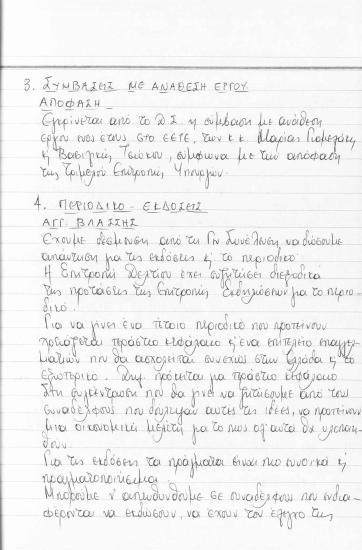 3. ΣΥΜΒΑΣΕΙΣ ΜΕ ΑΝΑΘΕΣΗ ΕΡΓΟΥ
ΑΠΟΦΑΣΗ
Εγκρίνεται από το Δ.Σ. η σύμβαση με ανάθεση
έργου ενός έτους στο ΕΕΤΕ, των κ.κ. Μαρίας
κ Βασιλικής, σύμφωνα με την απόφαση
της Τριμελού Επιτροπής
4. ΠΕΡΙΟΔΙΚΟ - ΕΚΔΟΣΕΙΣ
ΑΓΓ. ΒΛΑΣΣΗΣ
Έχουμε δέσμευση από τη Γεν Συνέλευση να δώσουμε
απάντηση για τις εκδόσεις κ το περιοδικό.
Η Επιτροπή Δελτίου έχει συζητήσει διεξοδικά
τις προτάσεις της Επιτροπής Εκδηλώσεων για το περιο-
δικό.
Για να γίνει ένα τέτοιο περιοδικό που προτείνουν
χρειάζεται τεράστιο κεφάλαιο κ ένα επιτελείο επαγγελ-
ματιών που θα ασχολείται συνεχώς στην Ελλάδα κ το
εξωτερικό. Δηλ. πρόκειται για τεράστιο κεφάλαιο
Στη συγκέντρωση που θα γίνει να ζητήσουμε από τους
συναδέλφους που δούλεψαν αυτές τις ιδέες, να προτείνουν
μια οικονομική μελέτη για το πώς όλ' αυτά θα υλοποιη-
θούν.
Για τις εκδόσεις τα πράγματα είναι πιο ευνοϊκά κ
πραγματοποιήσιμα.
Μπορούμε ν' απευθυνθούμε σε συναδέλφους που ενδια-
φέρονται να εκδώσουν, να έχουν τον έλεγχο της